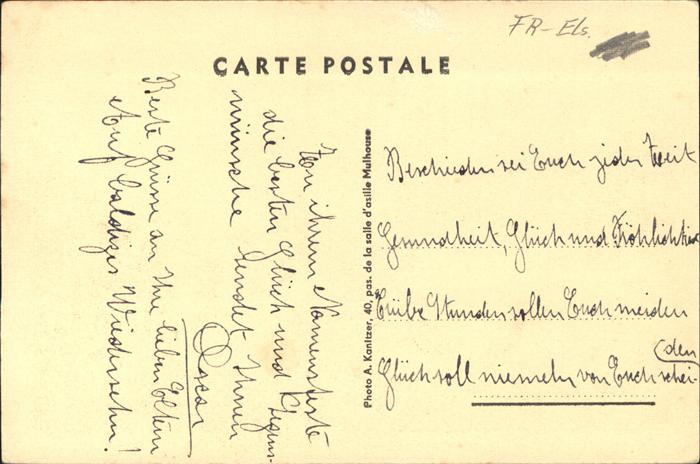 FR-Els.
CARTE POSTALE
Zu ihrem Namensfeste
die besten Glück und Segens-
wünsche sendet Ihnen
Oscar
Beste Grüsse an Ihre lieben Eltern
Auf baldiges Wiedersehn!
Photo A. Kanitzer, 40, pas. de la salle d'asile Mulhouse
Beschieden sei Euch jeder Zeit
Gesundheit, Glück und Fröhlichkeit
Trübe Stunden sollen Euch meiden
Glück soll niemehr von Euch schei-
(den